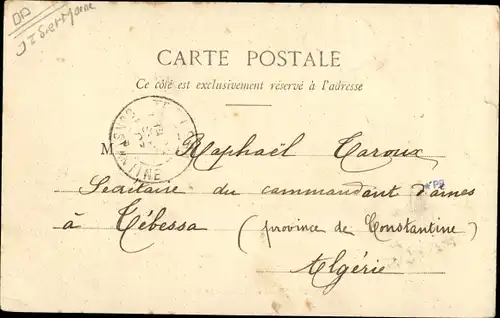 CARTE POSTALE
Ce côté est exclusivement réservé à l'adresse
M Raphaël Taroux
Secrétaire du commandant d'armes
à Tébessa (province de Constantine)
Algérie